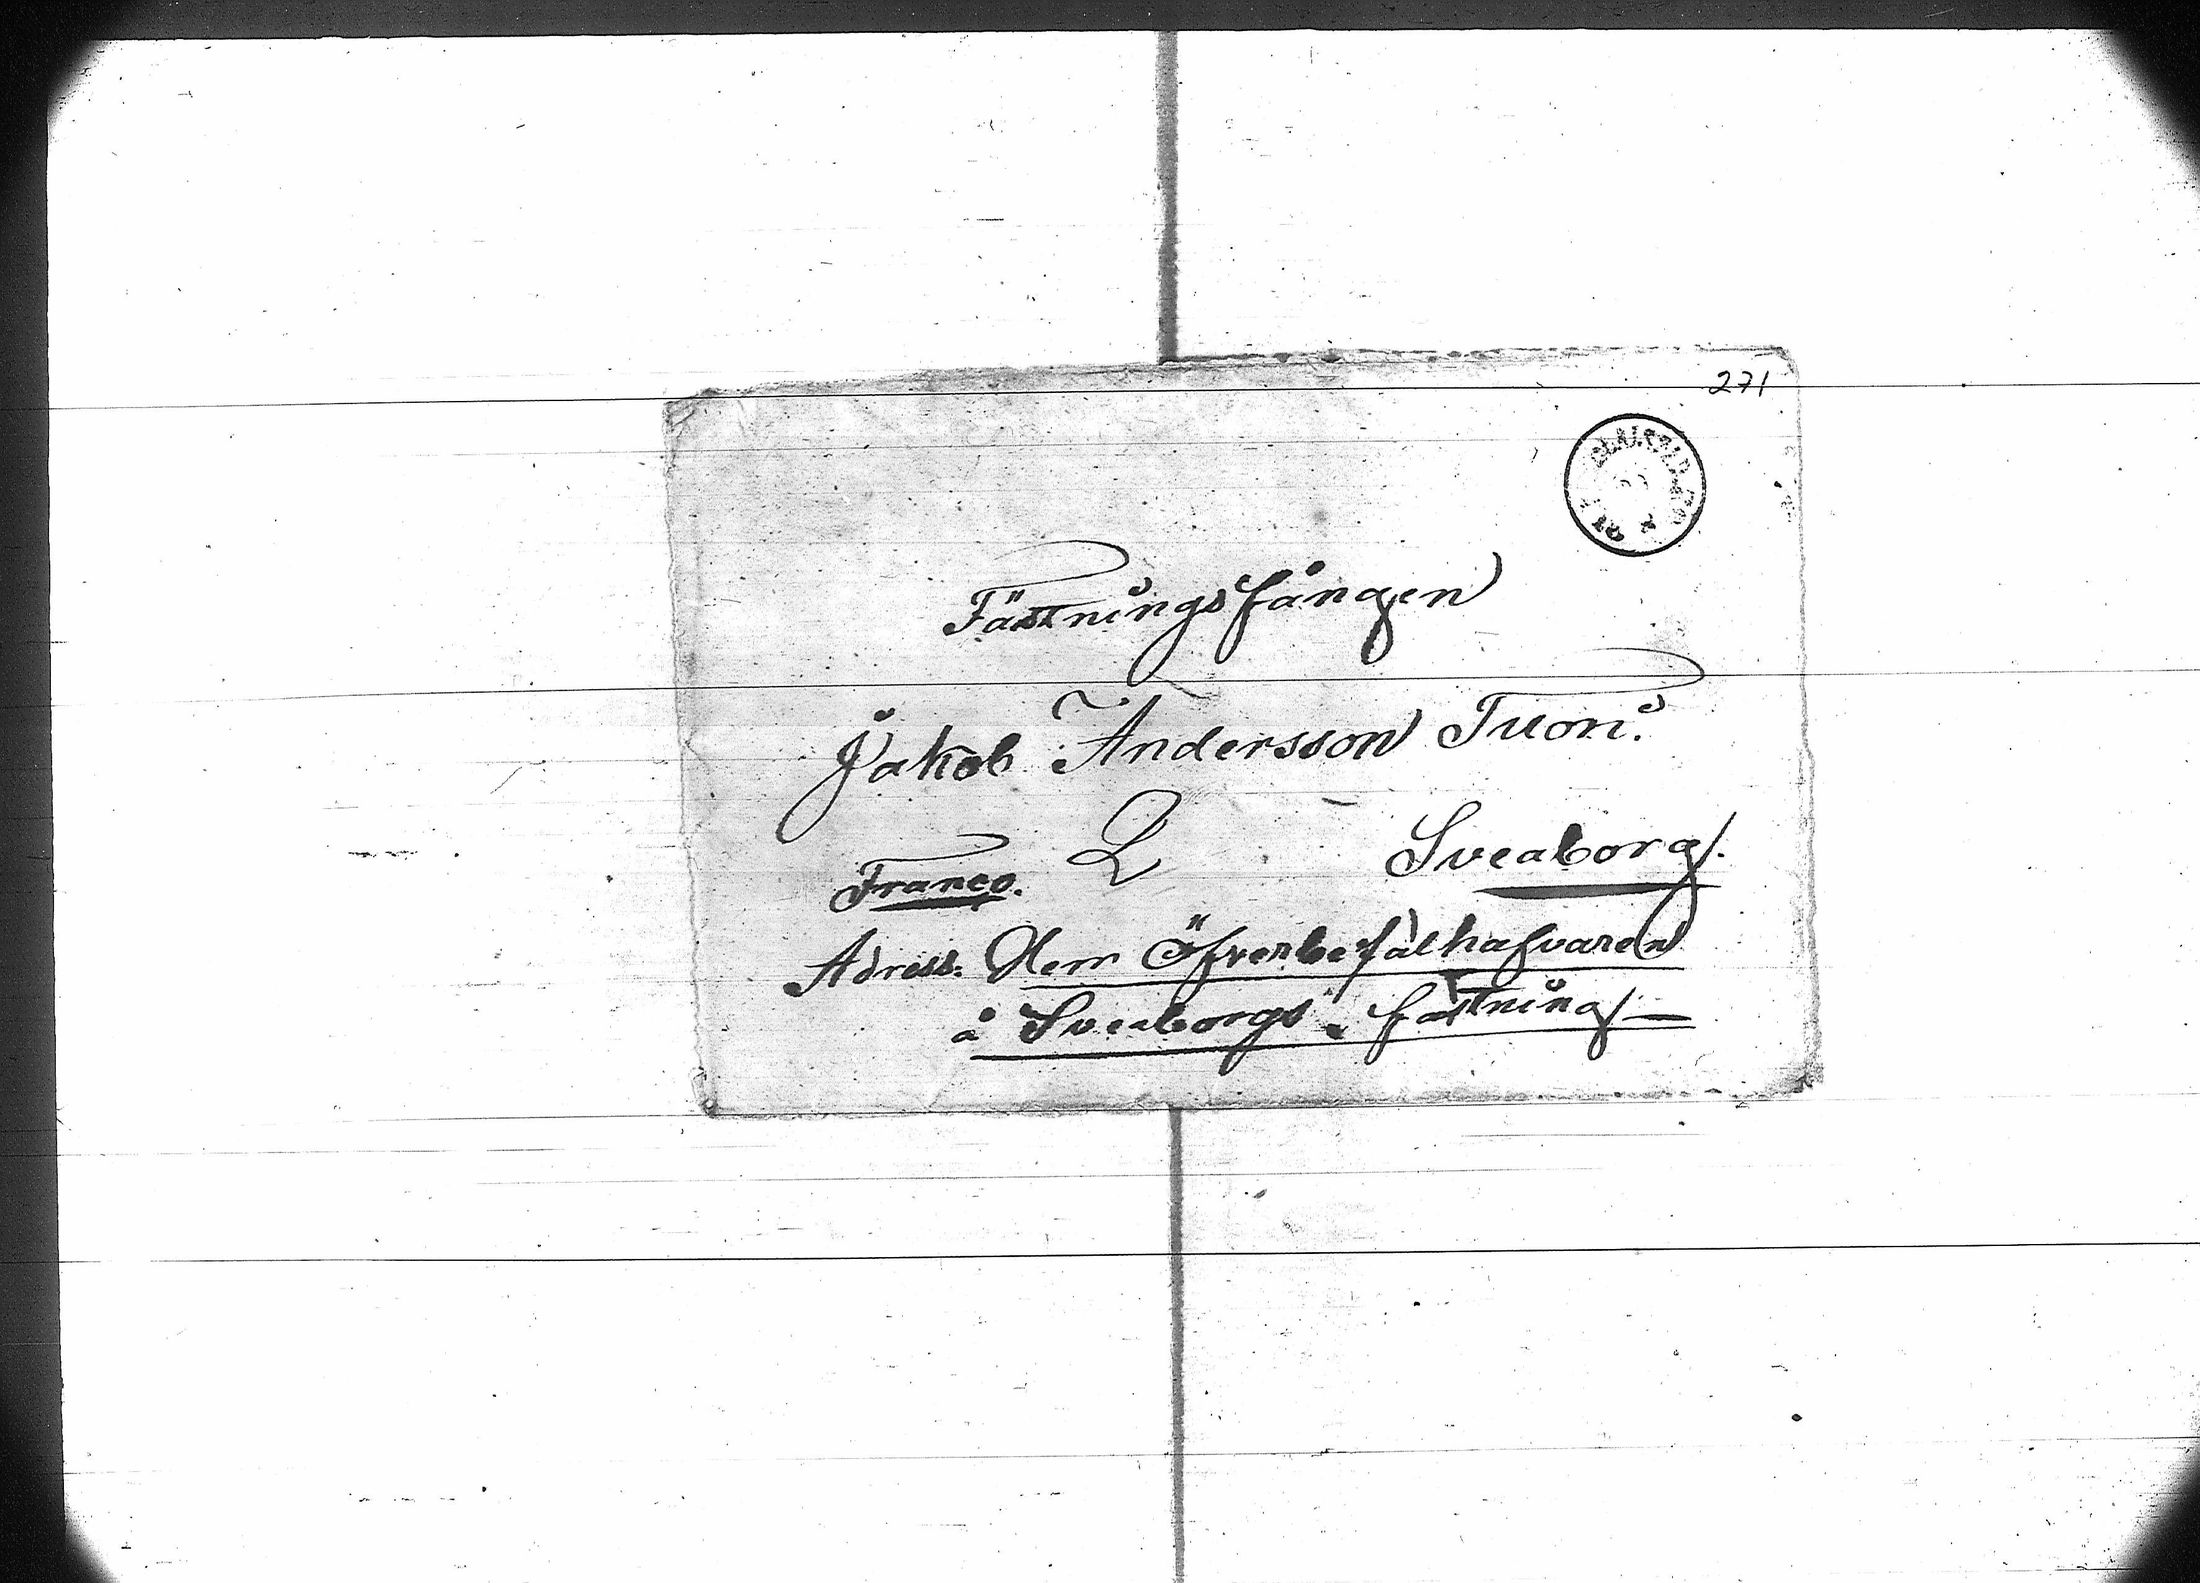 271
Fästningsfången
Jakob Andersson Tuori.
Sveaborg.
Franco.
Adress. Herr Öfverbefälhafvaren
å Sveaborgs fästning